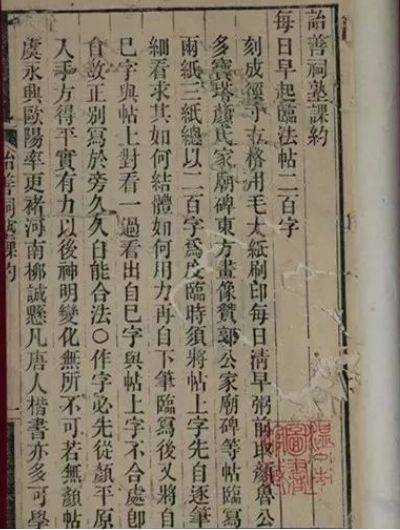 詒善祠塾課約
每日早起臨法帖二百字
刻成徑寸方格用毛太紙刷印每日清早粥前取顏魯公
多寶塔顏氏家廟碑東方畫像贊郭公家廟碑等帖臨寫
兩紙三紙總以二百字爲度臨時須將帖上字先自逐筆
細看求其如何結體如何用力再自下筆臨寫後又將自
已字與帖上對看一過看出自已字與帖上字不合處卽
自改正別寫於旁久久自能合法○作字必先從顏平原
入手方得平實有力以後神明變化無所不可若無顏帖
虞永興歐陽率更褚河南柳誠懸凡唐人楷書亦多可學
詒善祠塾課約
一